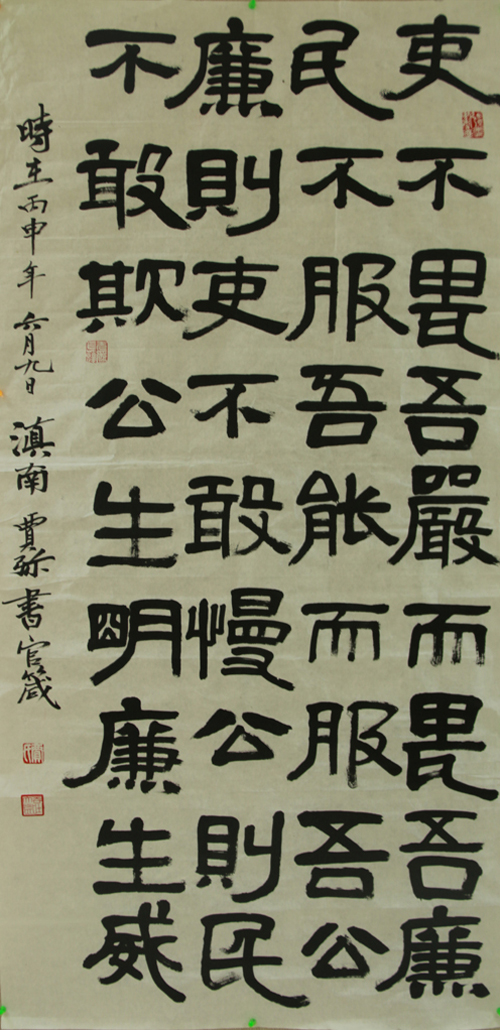 吏不畏吾嚴而畏吾廉
民不服吾能而服吾公
廉則吏不敢慢公則民
不敢欺公生明廉生威
時在丙申年六月九日滇南賈弥書官箴